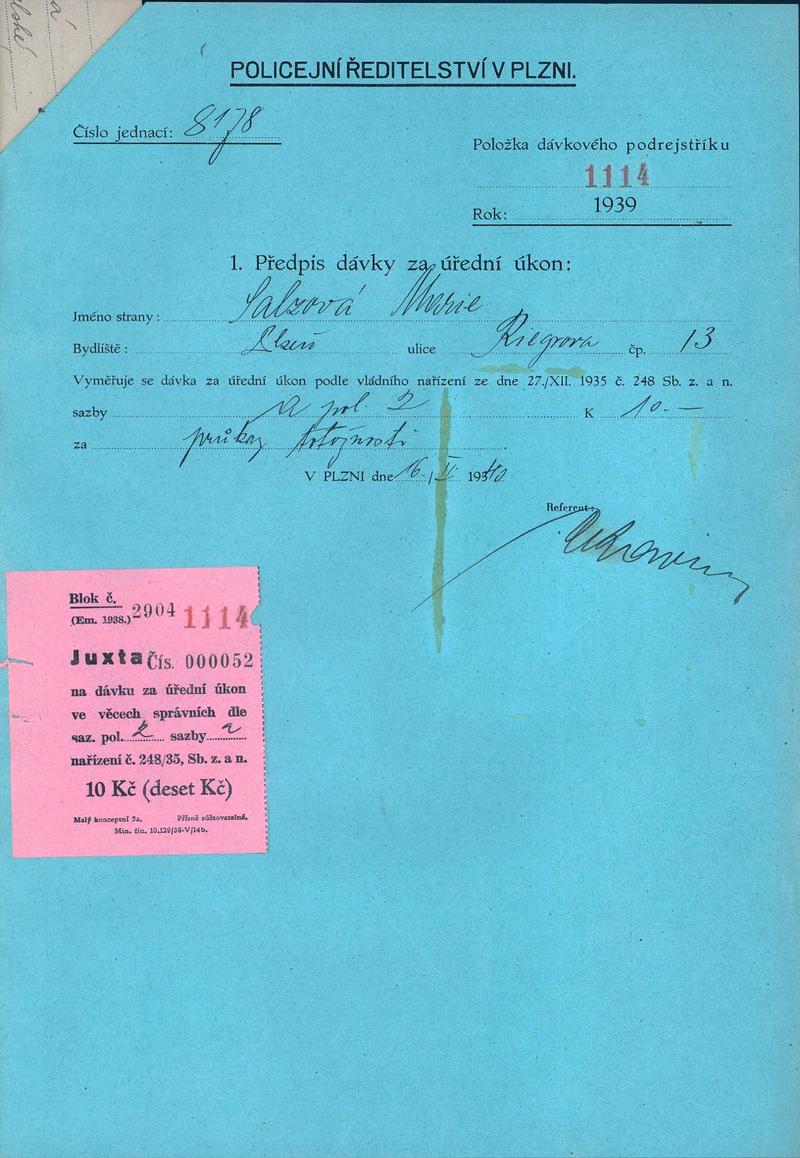 á
alské
POLICEJNÍ ŘEDITELSTVÍ V PLZNI.
Číslo jednací: 8178
Položka dávkového podrejstříku
1114
Rok: 1939
1. Předpis dávky za úřední úkon:
Jméno strany: Salzová Marie
Bydliště: Plzeň ulice Riegrova čp. 13
Vyměřuje se dávka za úřední úkon podle vládního nařízení ze dne 27./XII. 1935 č. 248 Sb. z. a n.
sazby a pol. 2 K 10.—
za průkaz totožnosti
V PLZNI dne 16./II. 1940
Referent:
Blok č. 2904 1114
(Em. 1938.)
Juxta Čís. 000052
na dávku za úřední úkon
ve věcech správních dle
saz. pol. 2 sazby a
nařízení č. 248/35, Sb. z. a n.
10 Kč (deset Kč)
Malý konceptní 5a. Přísně zúčtovatelné.
Min. fin. 10.129/38-V/14b.